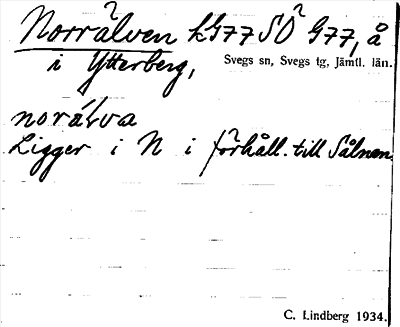 Norrälven kG77 SÖ G77, å
i Ytterberg, Svegs sn, Svegs tg, Jämtl. län.
norälva
Ligger i N i förhåll. till Sålnan.
C. Lindberg 1934.